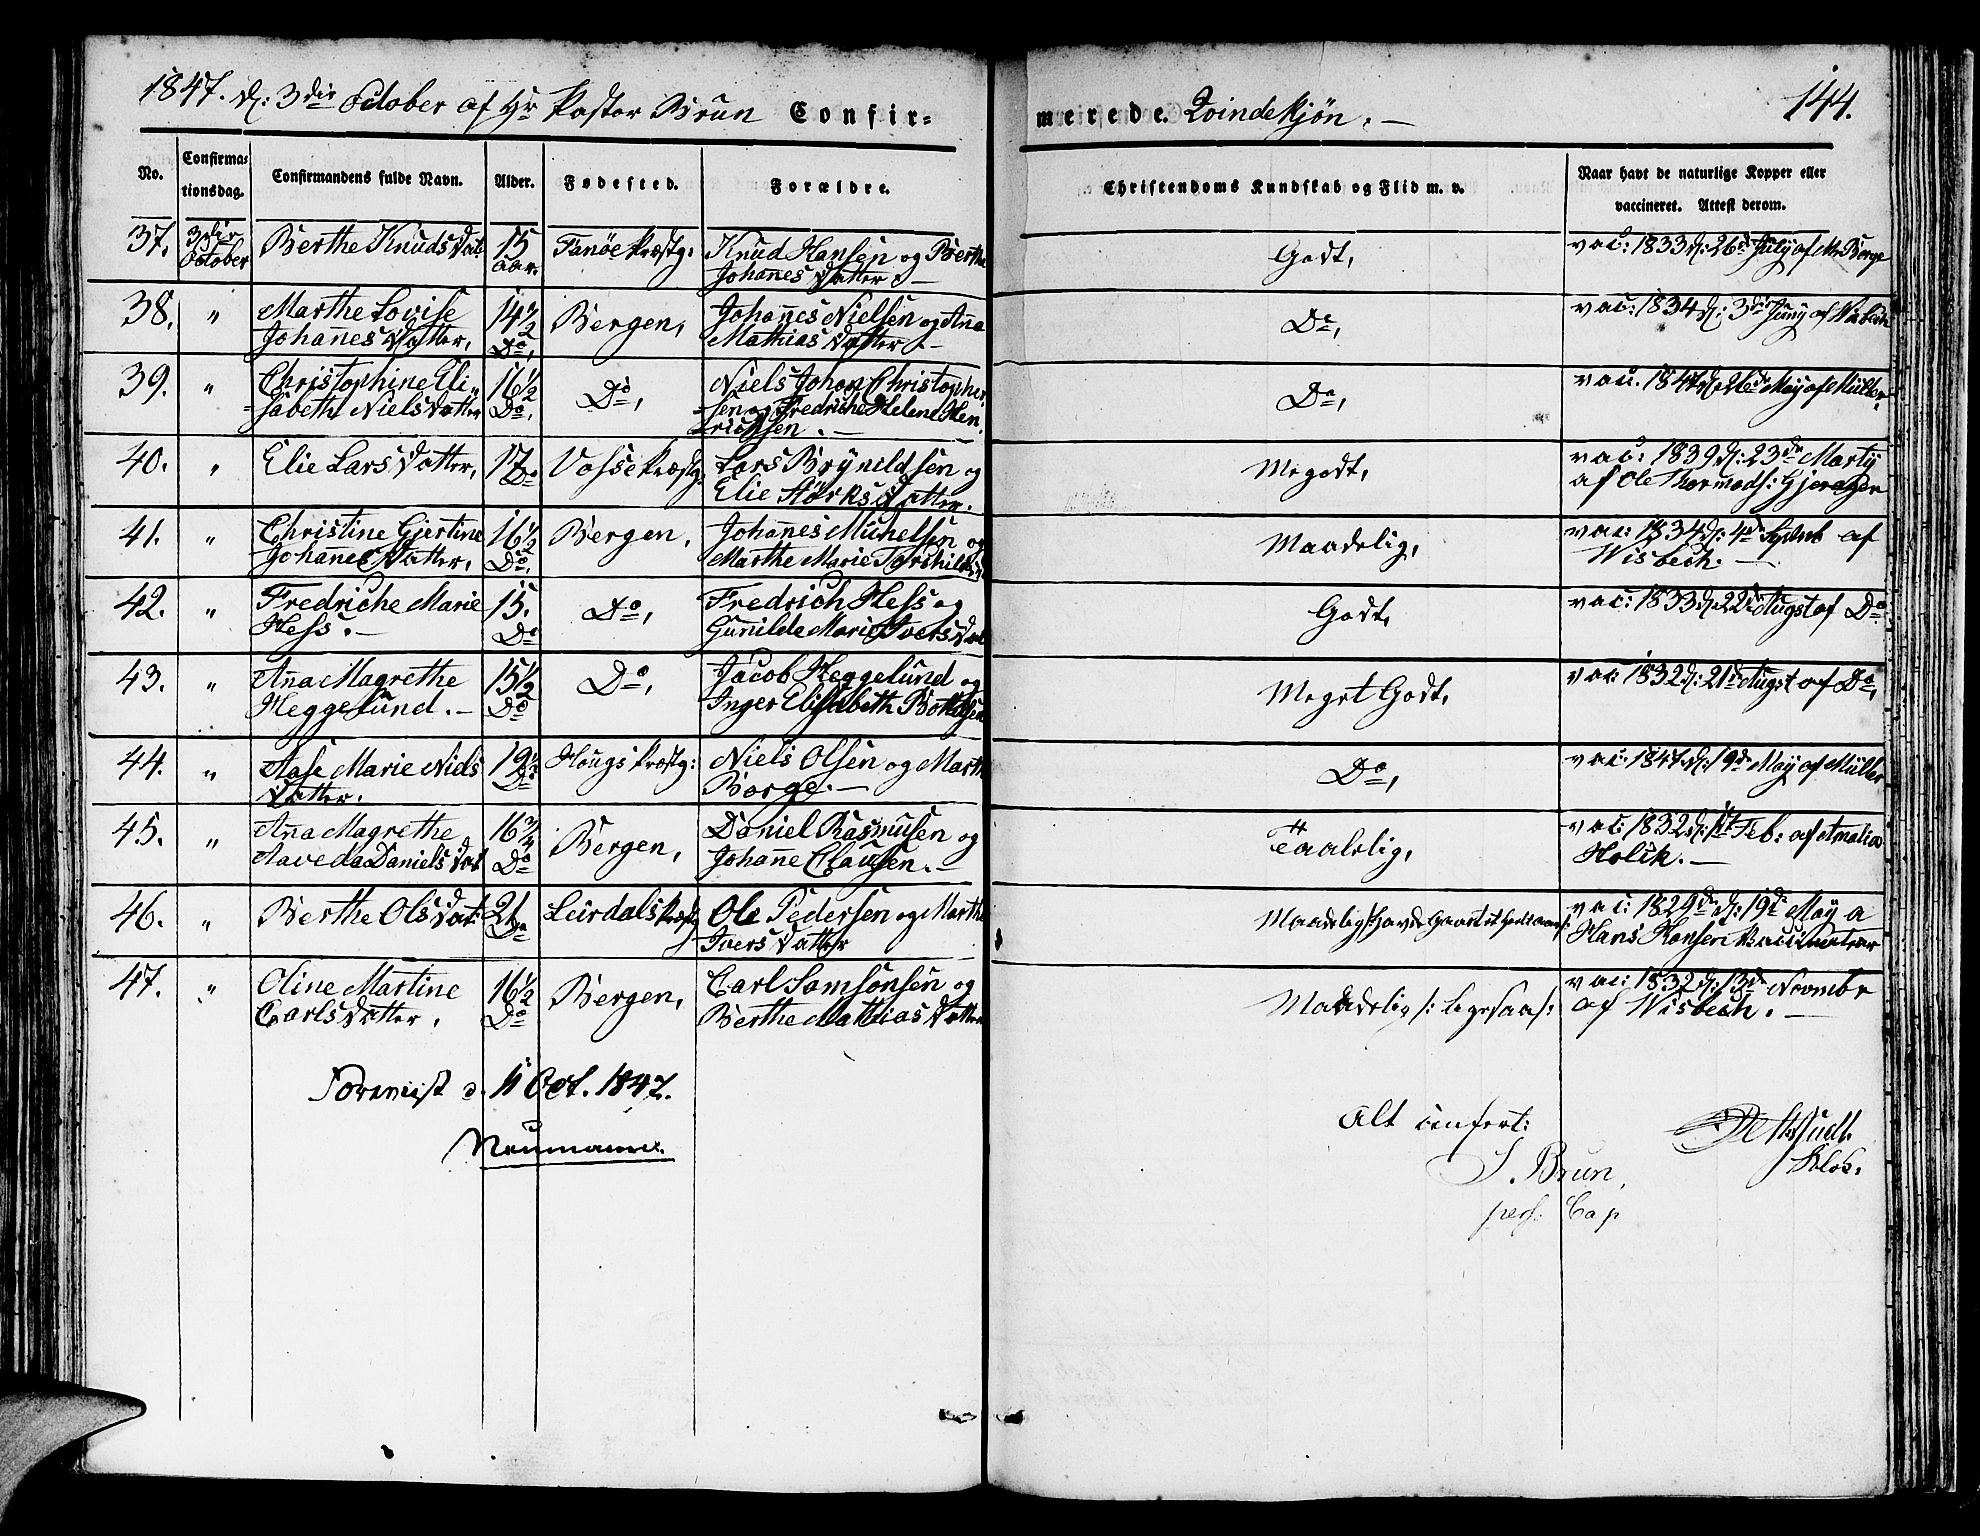 1847. d: 3die October af Hr Pastor Brun Confir-
merede. Qvindekjøn. —
144.
No.
Confirma-
tionsdag.
Confirmandens fulde Navn.
Alder.
Fødested.
Forældre.
Christendoms Kundskab og Flid m. v.
Naar havt de naturlige Kopper eller
vaccineret. Attest derom.
37. 3die October Berthe Knudsdat 15 aar. Fanøe Præstg: Knud Hansen og Berthe
Johanes Datter. — Godt, vac: 1833 d: 26de July af Mr. Borge
38. " Marthe Lovise
Johañes Datter, 14 1/2 Do, Bergen, Johañes Nielsen og Aña
Mathias Datter. — Do, vac: 1834 d: 3die Juny af Wisbech
39. " Christophine Eli-
sabeth Niels Datter 16 1/2 Do, Do, Niels Johan Christopher-
sen og Fredriche Helene Hen
richsen. — Do, vac. 1847 d: 26de May af Müller.
40. " Elie Lars Datter, 17 Do Vosse Præstg. Lars Brynildsen og
Elie Størks Datter. Megodt, vac: 1839 d: 23de Martij
af Ole Thormods: Gjeragen
41. " Christine Gjertine
Johañes Datter, 16 1/2 Do, Bergen, Johañes Michelsen og
Marthe Marie Maadelig, vac: 1834 d: 4de af
Wisbech. —
42. " Fredriche Marie
Hess. — 15. Do Do, Fredrich Hess og
Guñilde Marie Iversdat Godt, vac: 1833 d: 22de Augst af Do
43. " Aña Magrethe
Heggelund. — 15 1/2 Do Do, Jacob Heggelund og
Inger Elisabeth Meget Godt, vac: 1832 d: 21de Augst af Do,
44. " Aase Marie Niels
Datter. 19 1/2 Do Hougs Præstg: Niels Olsen og Marthe
Borge. — Do, vac: 1847 d: 19de May af Müller
45. " Aña Magrethe
Daniels Dat 16 3/4 Do Bergen, Daniel Rasmusen og
Johañe Clausen. — Taalelig, vac: 1832 d: Feb: af Amalia
Holck. —
46. " Berthe Ols Dat: 21 Do Leirdals Præstg. Ole Pedersen og Marthe
Ivers Datter Maadelig vac: 1829 d: 19de May a
Hans Hansen
47. " Oline Martine
Carls Datter, 16 1/2 Do Bergen, Carl Samsonsen og
Berthe Mathias Datter Maadelig /: ligesaa /: vac: 1832 d: 13de Novmbr
af Wisbech. —
Foreviist d. 11 Oct. 1847.
Neumann.
Alt confert:
J. Brun,
pers: Cap
Klok.